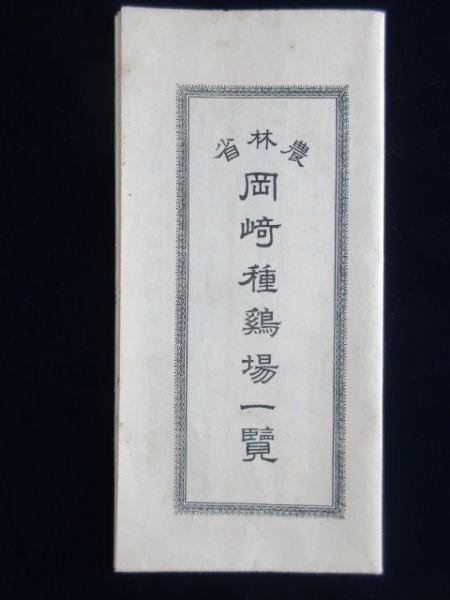 農林省
岡崎種鷄場一覽